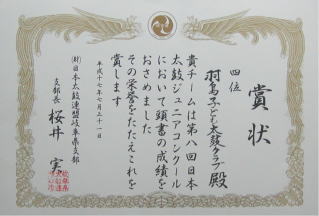 賞状
四位
羽島子ども太鼓クラブ殿
貴チームは第八回日本
太鼓ジュニアコンクール
において頭書の成績を
おさめました
その栄誉をたたえこれを
賞します
平成十七年七月三十一日
(財)日本太鼓連盟岐阜県支部
支部長 桜井 実